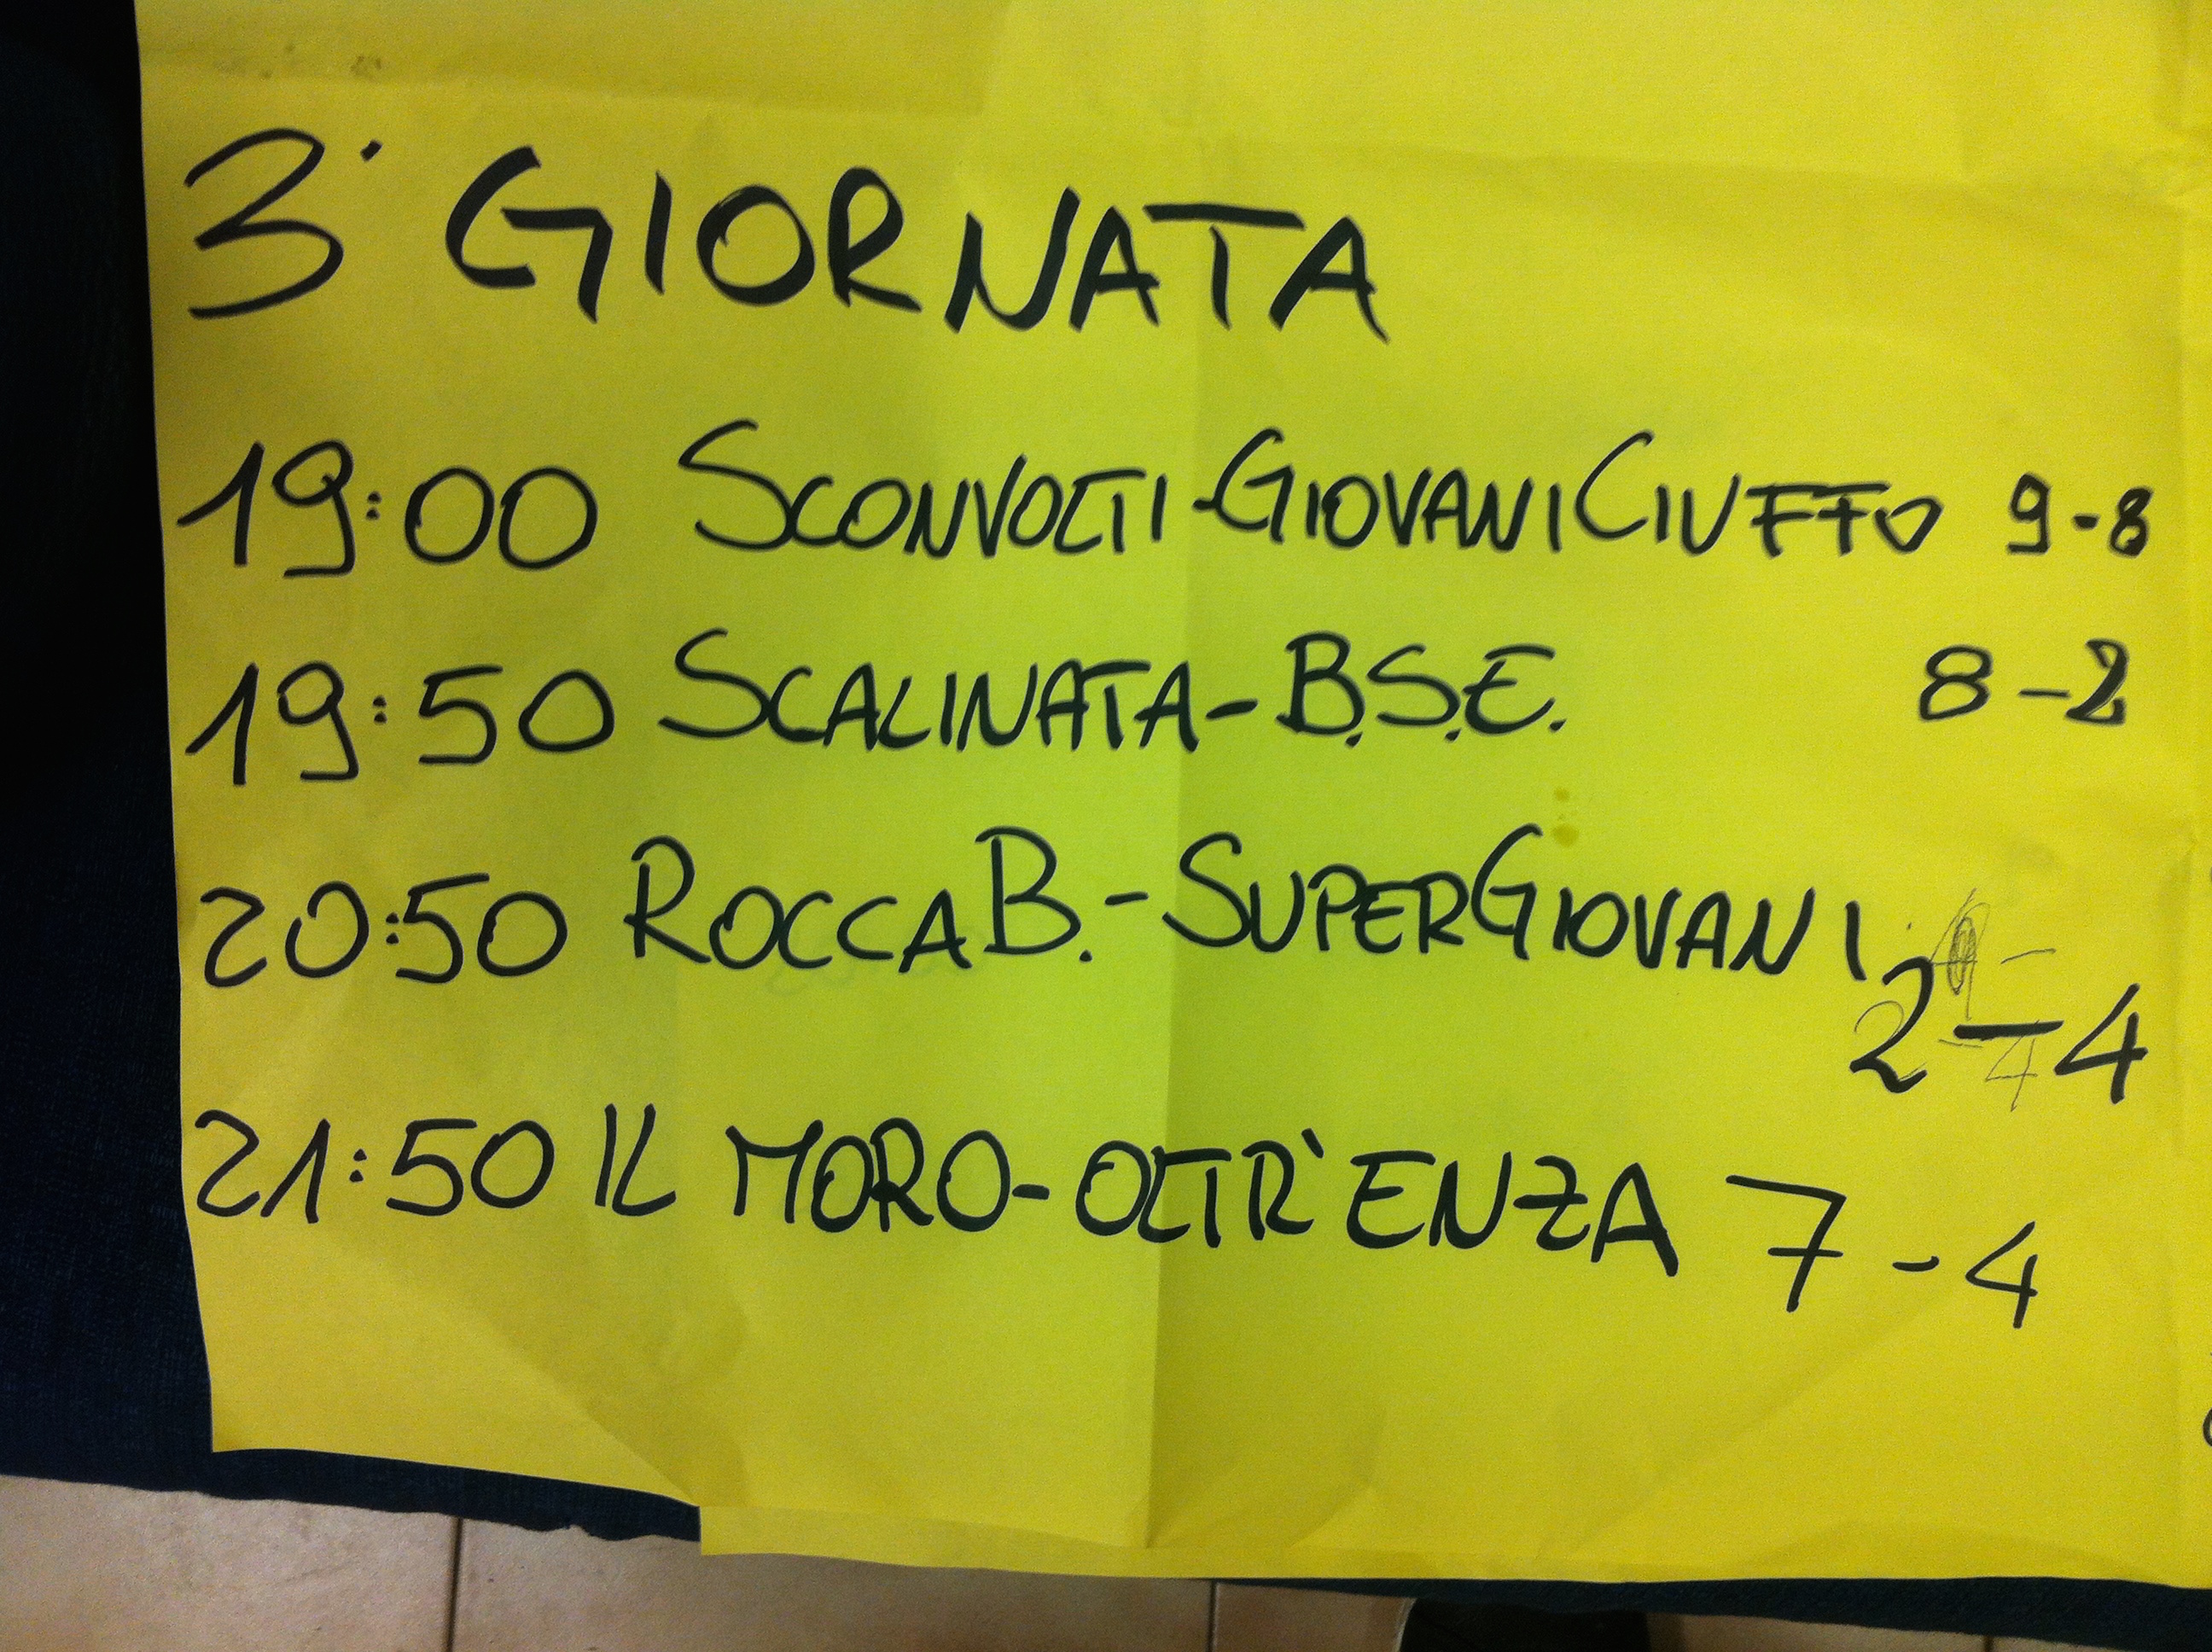 3° GIORNATA
19:00 SCONVOLTI-GIOVANI CIUFFO 9-8
19:50 SCALINATA-B.S.E. 8-2
20:50 ROCCA B.-SUPERGIOVANI 2-4
21:50 IL MORO-OLTR'ENZA 7-4